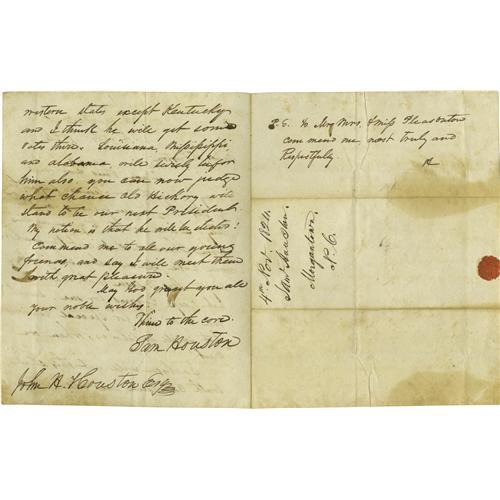 western states except Kentucky
and I think he will get some
votes there. Louisiana, Mississippi
and Alabama will surely go for
him also you can now judge
what chance Old Hickory will
stand to be our next President
My notion is that he will be elected!
Commend me to all our young
friends, and say I will meet them
with great pleasure.
May God grant you all
your noble wishes.
Thine to the core.
Sam Houston
John H. Houston Esqr
P.S. To Mr Mrs. & Miss Pleasonton
commend me most truly and
Respectfully
H
4th Nov. 1824.
Sam Houston.
Morgantown.
N. C.